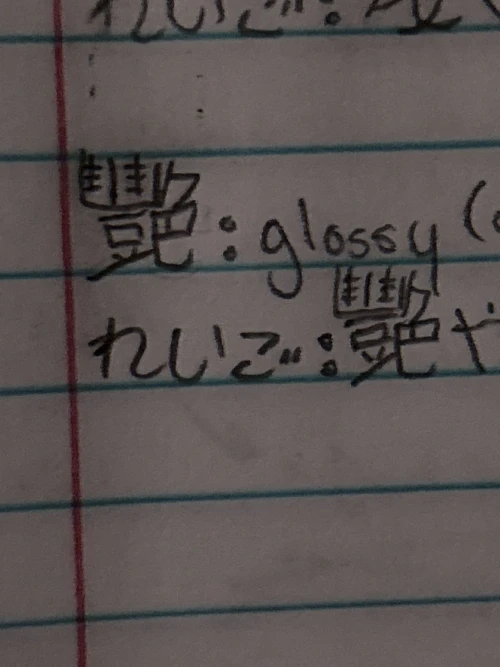 れいご:
艶:glossy (
れいご:艶や